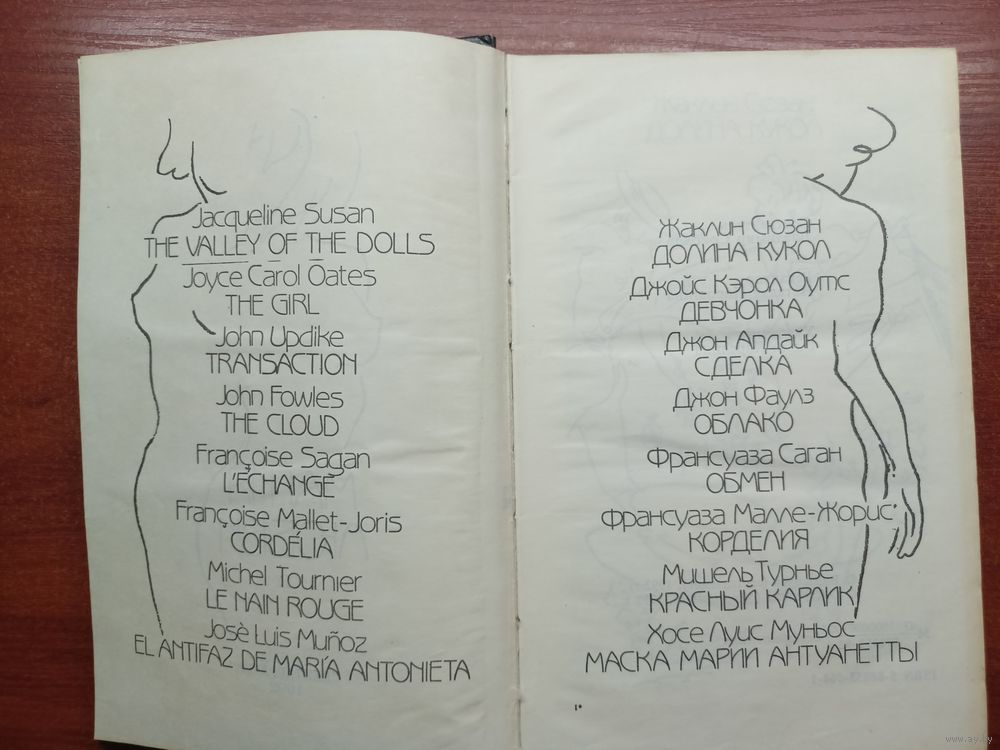 Jacqueline Susan
THE VALLEY OF THE DOLLS
Joyce Carol Oates
THE GIRL
John Updike
TRANSACTION
John Fowles
THE CLOUD
Françoise Sagan
L'ÉCHANGE
Françoise Mallet-Joris
CORDÉLIA
Michel Tournier
LE NAIN ROUGE
Josè Luis Muñoz
EL ANTIFAZ DE MARÍA ANTONIETA
Жаклин Сюзан
ДОЛИНА КУКОЛ
Джойс Кэрол Оутс
ДЕВЧОНКА
Джон Апдайк
СДЕЛКА
Джон Фаулз
ОБЛАКО
Франсуаза Саган
ОБМЕН
Франсуаза Малле-Жорис
КОРДЕЛИЯ
Мишель Турнье
КРАСНЫЙ КАРЛИК
Хосе Луис Муньос
МАСКА МАРИИ АНТУАНЕТТЫ
1*
www.ay.by